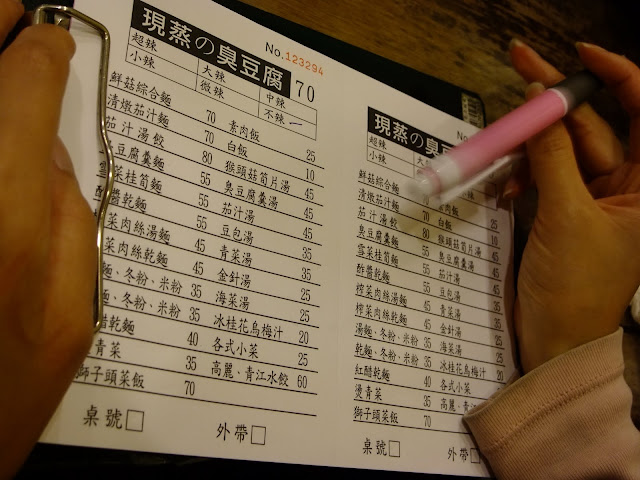 No.123294
現蒸の臭豆腐 70
超辣 大辣 中辣
小辣 微辣 不辣
鮮菇綜合麵 70 素肉飯 25
清燉茄汁麵 70 白飯 10
茄汁湯餃 80 猴頭菇筍片湯 45
豆腐羹麵 55 臭豆腐羹湯 45
雪菜桂筍麵 55 茄汁湯 45
醡醬乾麵 55 豆包湯 35
菜肉絲湯麵 45 青菜湯 35
菜肉絲乾麵 45 金針湯 25
麵、冬粉、米粉 35 海菜湯 25
麵、冬粉、米粉 35 冰桂花烏梅汁 20
醋乾麵 40 各式小菜 25
青菜 35 高麗、青江水餃 60
獅子頭菜飯 70
桌號□ 外帶□
No
現蒸の臭豆
超辣
小辣
鮮菇綜合麵
清燉茄汁麵 70 白飯 25
茄汁湯餃 80 猴頭菇筍片湯 10
臭豆腐羹麵 55 臭豆腐羹湯 45
雪菜桂筍麵 55 茄汁湯 45
酢醬乾麵 55 豆包湯 45
榨菜肉絲湯麵 45 青菜湯 35
榨菜肉絲乾麵 45 金針湯 35
湯麵、冬粉、米粉 35 海菜湯 25
乾麵、冬粉、米粉 35 冰桂花烏梅汁 25
紅醋乾麵 40 各式小菜 20
燙青菜 35 高麗、青江
獅子頭菜飯 70
桌號□ 外帶□